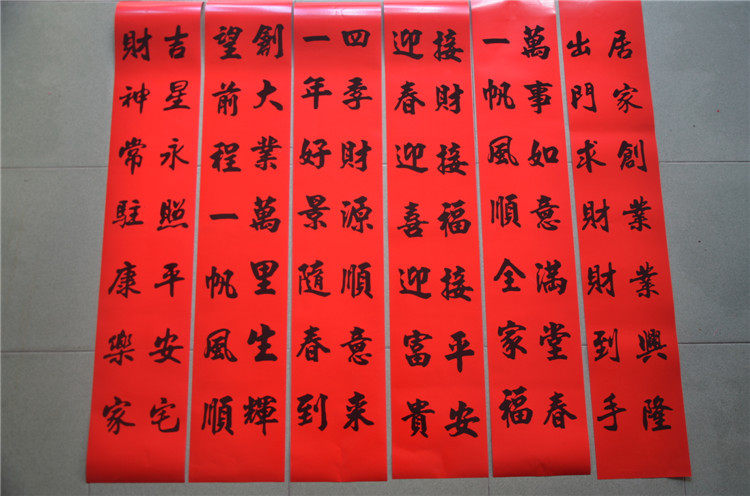 居家創業業興隆
出門求財財到手
萬事如意滿堂春
一帆風順全家福
接財接福接平安
迎春迎喜迎富貴
四季財源順意来
一年好景隨春到
創大業萬里生輝
望前程一帆風順
吉星永照平安宅
財神常駐康樂家